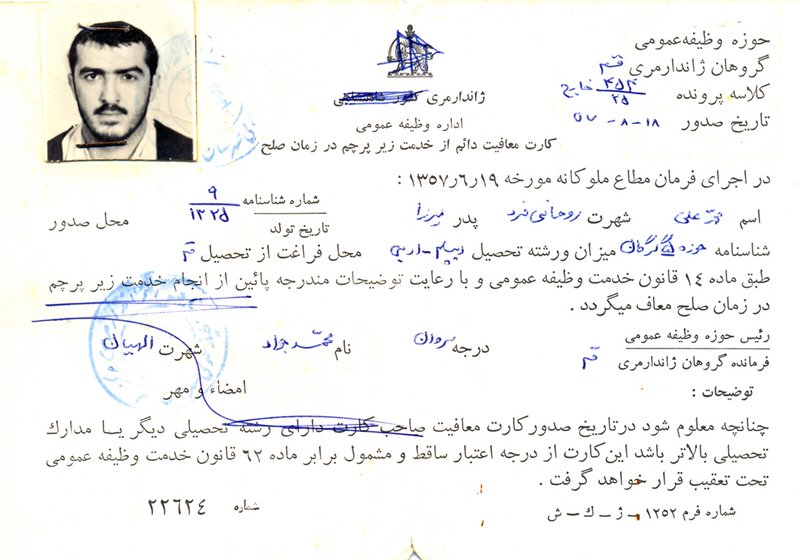 حوزه وظیفه‌عمومی
گروهان ژاندارمری قم
کلاسه پرونده ۴۵۴/۲۵ خارج
تاریخ صدور ۱۸-۸-۵۷
ژاندارمری کشور شاهنشاهی
اداره وظیفه عمومی
کارت معافیت دائم از خدمت زیر پرچم در زمان صلح
در اجرای فرمان مطاع ملوکانه مورخه ۱۳۵۷/۶/۱۹ :
اسم شهرت روحانی فرد پدر میرزا شماره شناسنامه ۹
تاریخ تولد ۱۳۲۵ محل صدور
شناسنامه حوزه میزان ورشته تحصیل دیپلم-ادبی محل فراغت از تحصیل قم
طبق ماده ۱۴ قانون خدمت وظیفه عمومی و با رعایت توضیحات مندرجه پائین از انجام خدمت زیر پرچم
در زمان صلح معاف میگردد .
رئیس حوزه وظیفه عمومی
فرمانده گروهان ژاندارمری قم درجه سروان نام محمد جواد شهرت الهیان
امضاء و مهر
توضیحات :
چنانچه معلوم شود درتاریخ صدورکارت معافیت صاحب کارت دارای رشته تحصیلی دیگر یـا مدارك
تحصیلی بالاتر باشد این‌کارت از درجه اعتبار ساقط و مشمول برابر ماده ۶۲ قانون خدمت وظیفه عمومی
تحت تعقیب قرار خواهد گرفت .
شماره فرم ۱۲۵۲ - ژ - ك - ش شماره ۲۲۶۲۴